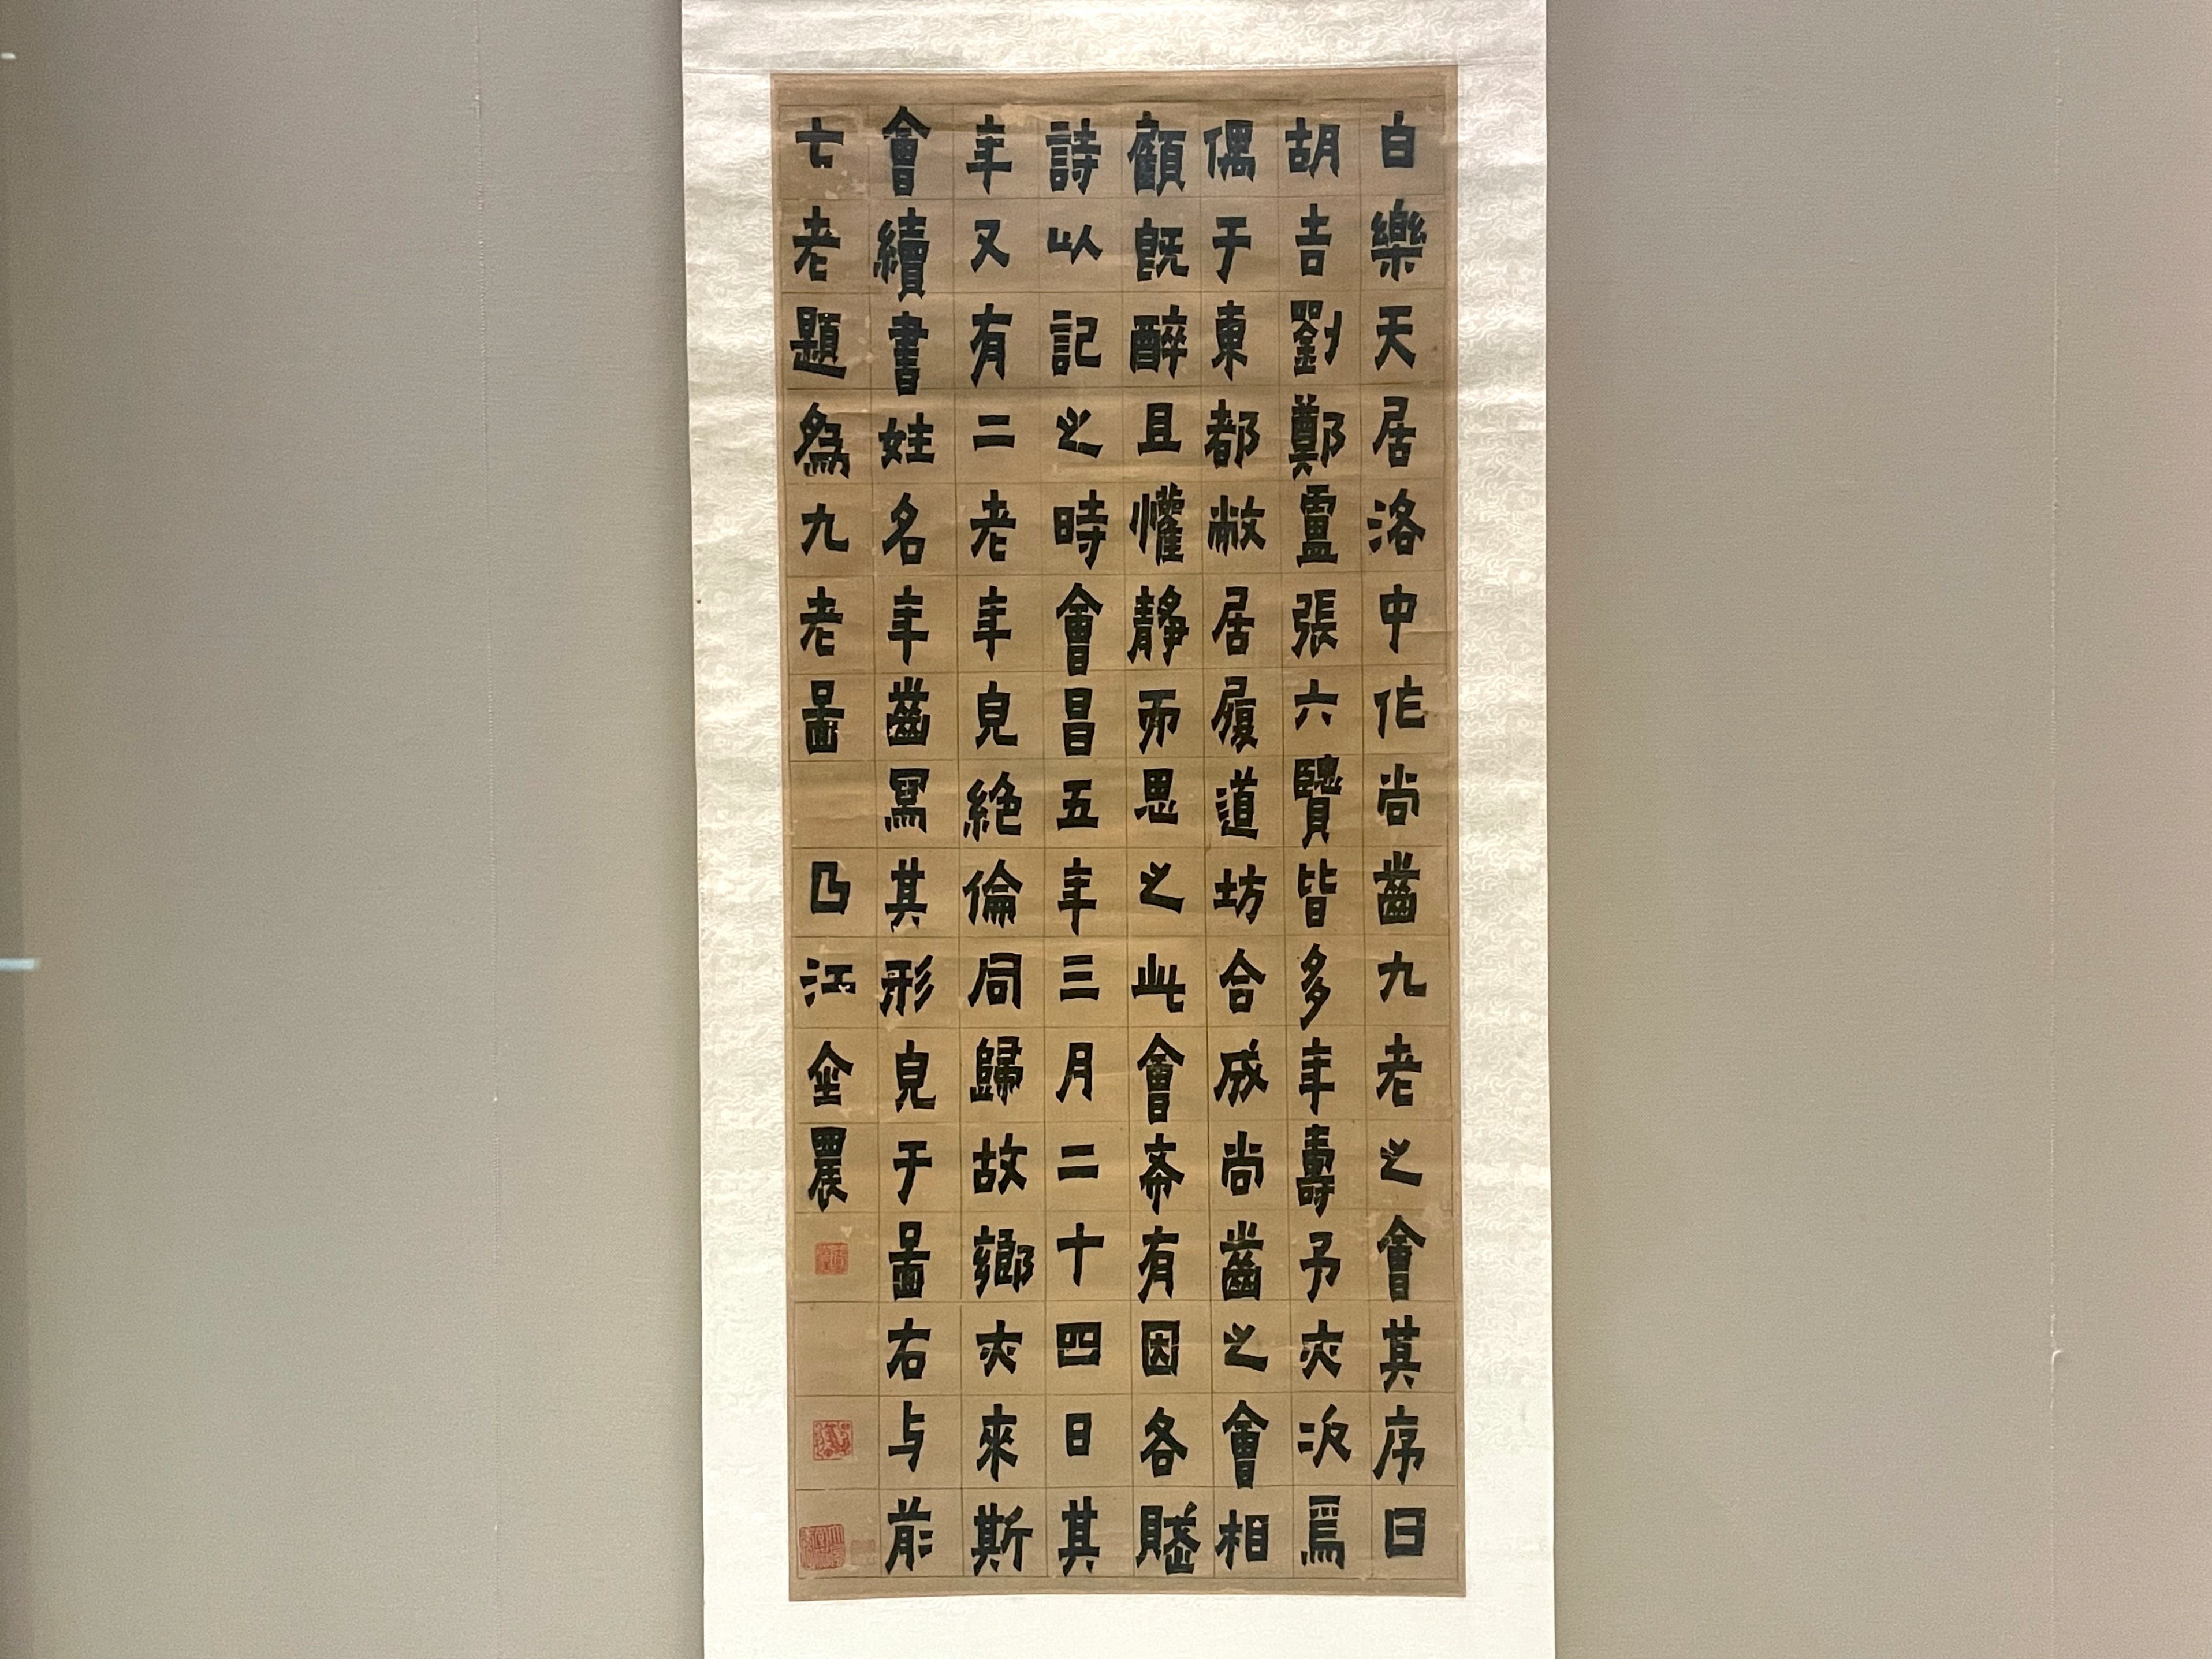 白樂天居洛中作尚齒九老之會其序曰
胡吉劉鄭盧張六賢皆多年壽予亦次焉
偶于東都敝居履道坊合成尚齒之會相
顧既醉且懽靜而思之此會希有因各賦
詩以記之時會昌五年三月二十四日其
年又有二老年皃絶倫同歸故鄉亦來斯
會續書姓名年齒寫其形皃于啚右与前
七老題為九老啚 曲江金農